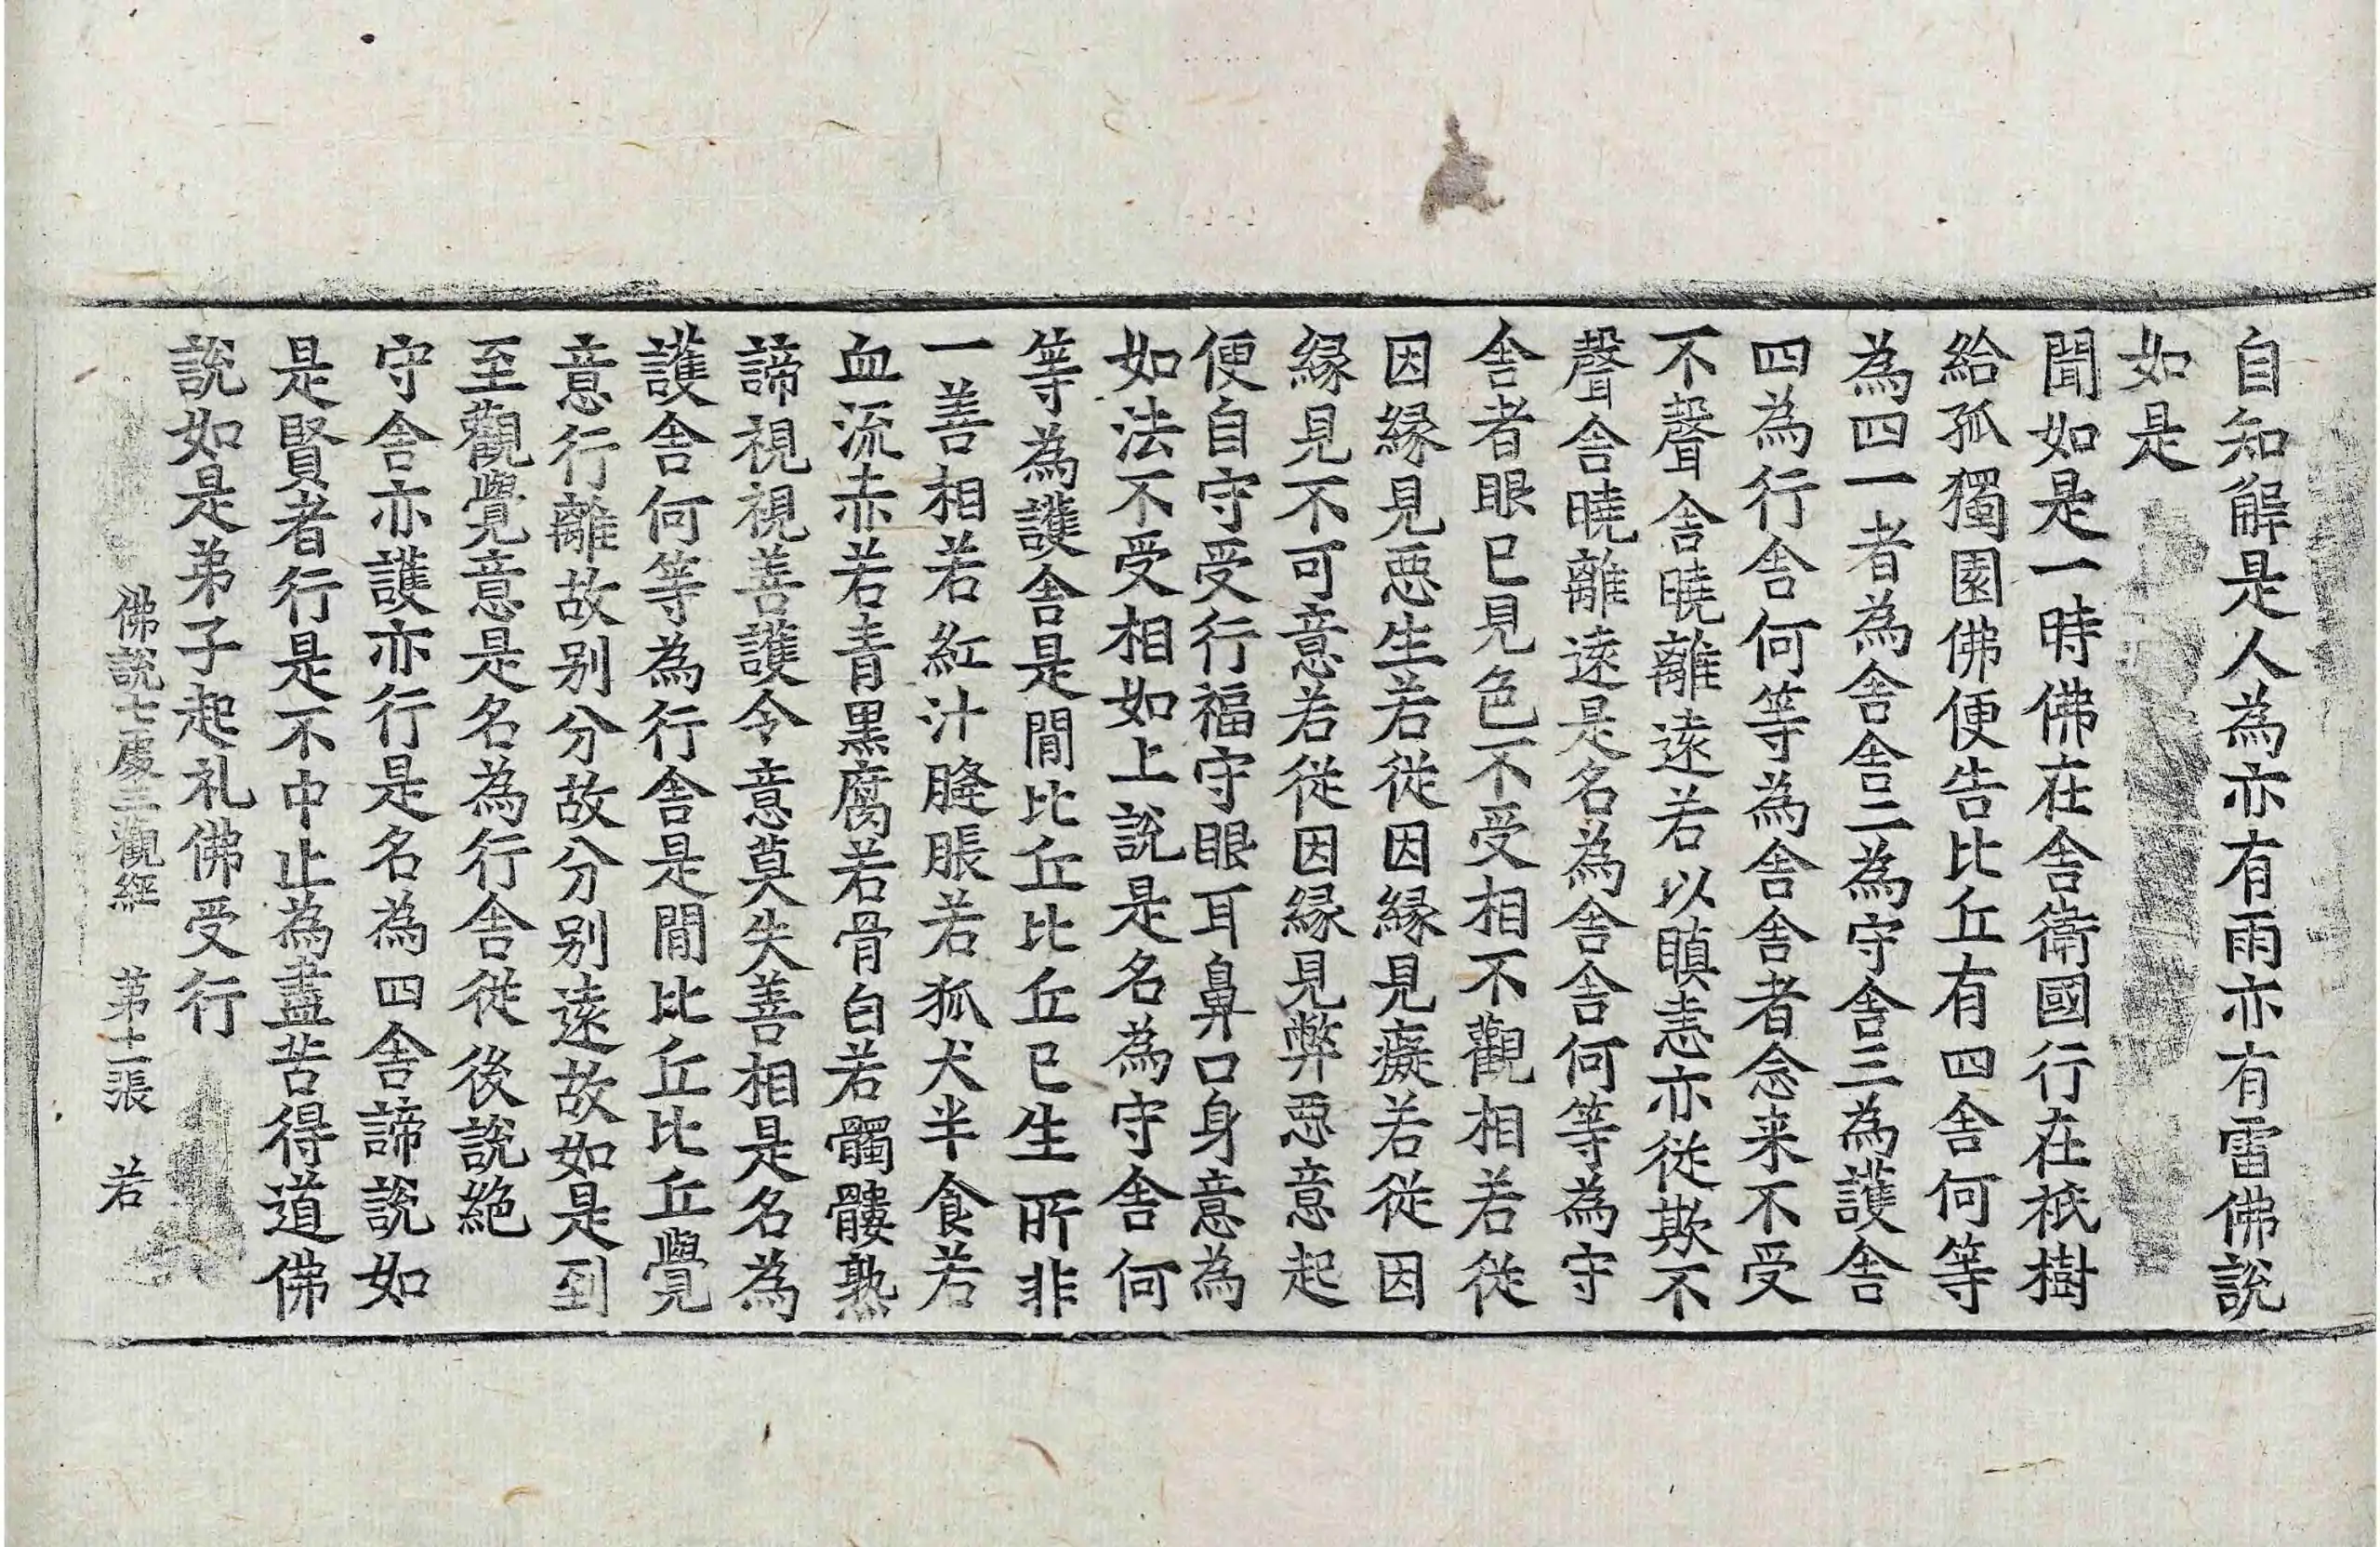 自知解是人為亦有雨亦有雷佛說
如是
聞如是一時佛在舍衛國行在祇樹
給孤獨園佛便告比丘有四舍何等
為四一者為舍舍二為守舍三為護舍
四為行舍何等為舍舍者念来不受
不聲舍曉離遠若以瞋恚亦從欺不
聲舍曉離遠是名為舍舍何等為守
舍者眼已見色不受相不觀相若從
因緣見惡生若從因緣見癡若從因
緣見不可意若從因緣見弊惡意起
便自守受行福守眼耳鼻口身意為
如法不受相如上說是名為守舍何
等為護舍是閒比丘比丘已生所非
一善相若紅汁膖脹若狐犬半食若
血流赤若青黑腐若骨白若髑髏熟
諦視視善護令意莫失善相是名為
護舍何等為行舍是閒比丘比丘覺
意行離故别分故分别遠故如是到
至觀覺意是名為行舍從後說絕
守舍亦護亦行是名為四舍諦說如
是賢者行是不中止為盡苦得道佛
說如是弟子起礼佛受行
佛說七處三觀經　第十二張　若